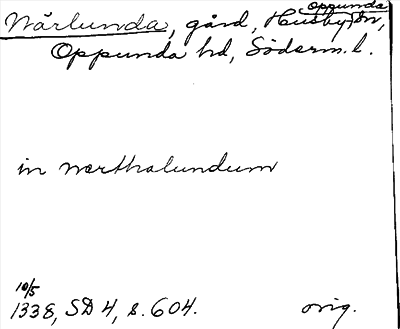 Oppunda
Närlunda, gård, Husby, sn,
Oppunda hd, Söderm. l.
in nærthalundum
10/5
1338, SD 4, s. 604. orig.